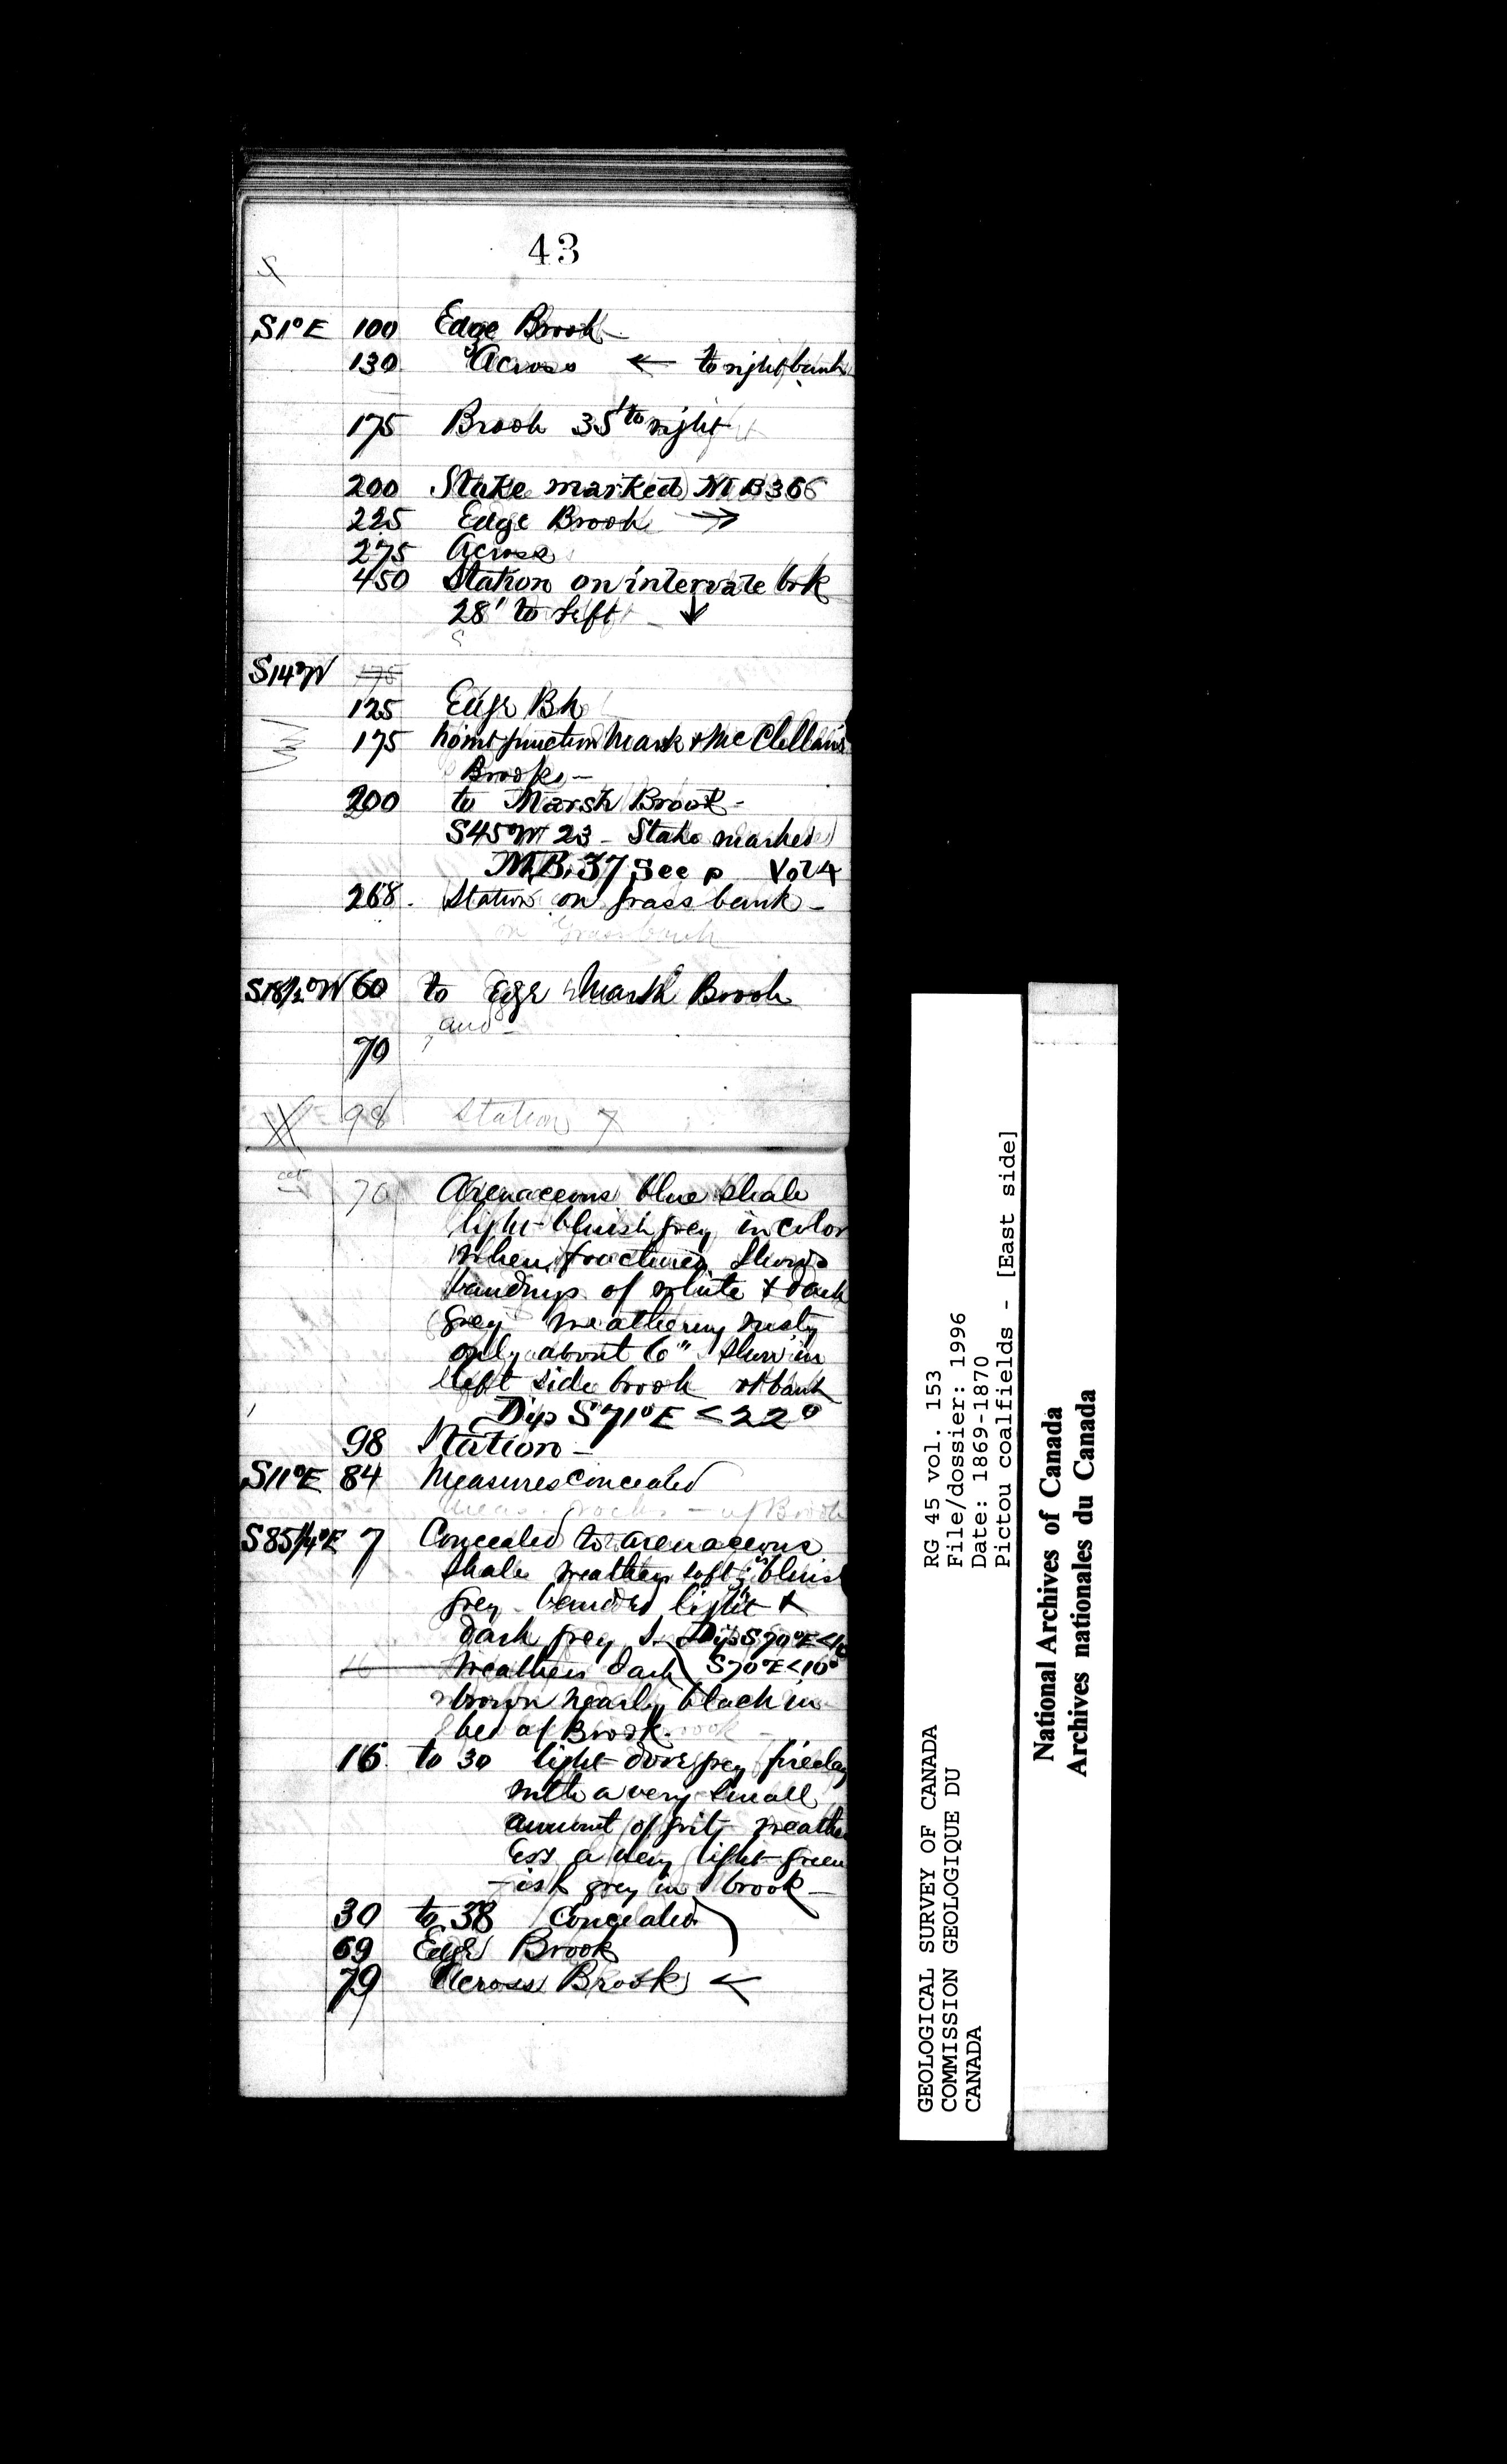 43
S1°E 100 Edge Brook -
130 Across ← to right bank
175 Brook 35' to right
200 Stake marked M B 36
225 Edge Brook →
275 Across
450 Station on intervale brk
28' to left ↓
S14°W 175
125 Edge Bk
175 point junction Marsh & McClellans
Brooks -
200 to Marsh Brook -
S45°W 23 - Stake marked
M.B. 37 See p Vol 4
268. Station on grass bank -
on Grass bank
S18½°W 60 to Edge Marsh Brook
and -
70
98 Station
70 Arenaceous blue shale
light bluish grey in color
when fractured shows
bandings of white & dark
grey weathering rusty
only about 6" show in
left side brook bank
Dip S71°E <22°
98 Station -
S11°E 84 Measures concealed
of Brook
S85¼°E 7 Concealed to arenaceous
shale weathers soft bluish
grey banded light &
dark grey Dip S70°E <10
16 weathers dark S70°E <10°
brown nearly black in
bed of Brook.
16 to 30 light dove grey fireclay
with a very small
amount of grit weathe
a very light green
-ish grey in brook -
30 to 38 Concealed
69 Edge Brook
79 Across Brook ←
RG 45 vol. 153
File/dossier: 1996
Date: 1869-1870
Pictou coalfields - [East side]
GEOLOGICAL SURVEY OF CANADA
COMMISSION GEOLOGIQUE DU
CANADA
National Archives of Canada
Archives nationales du Canada